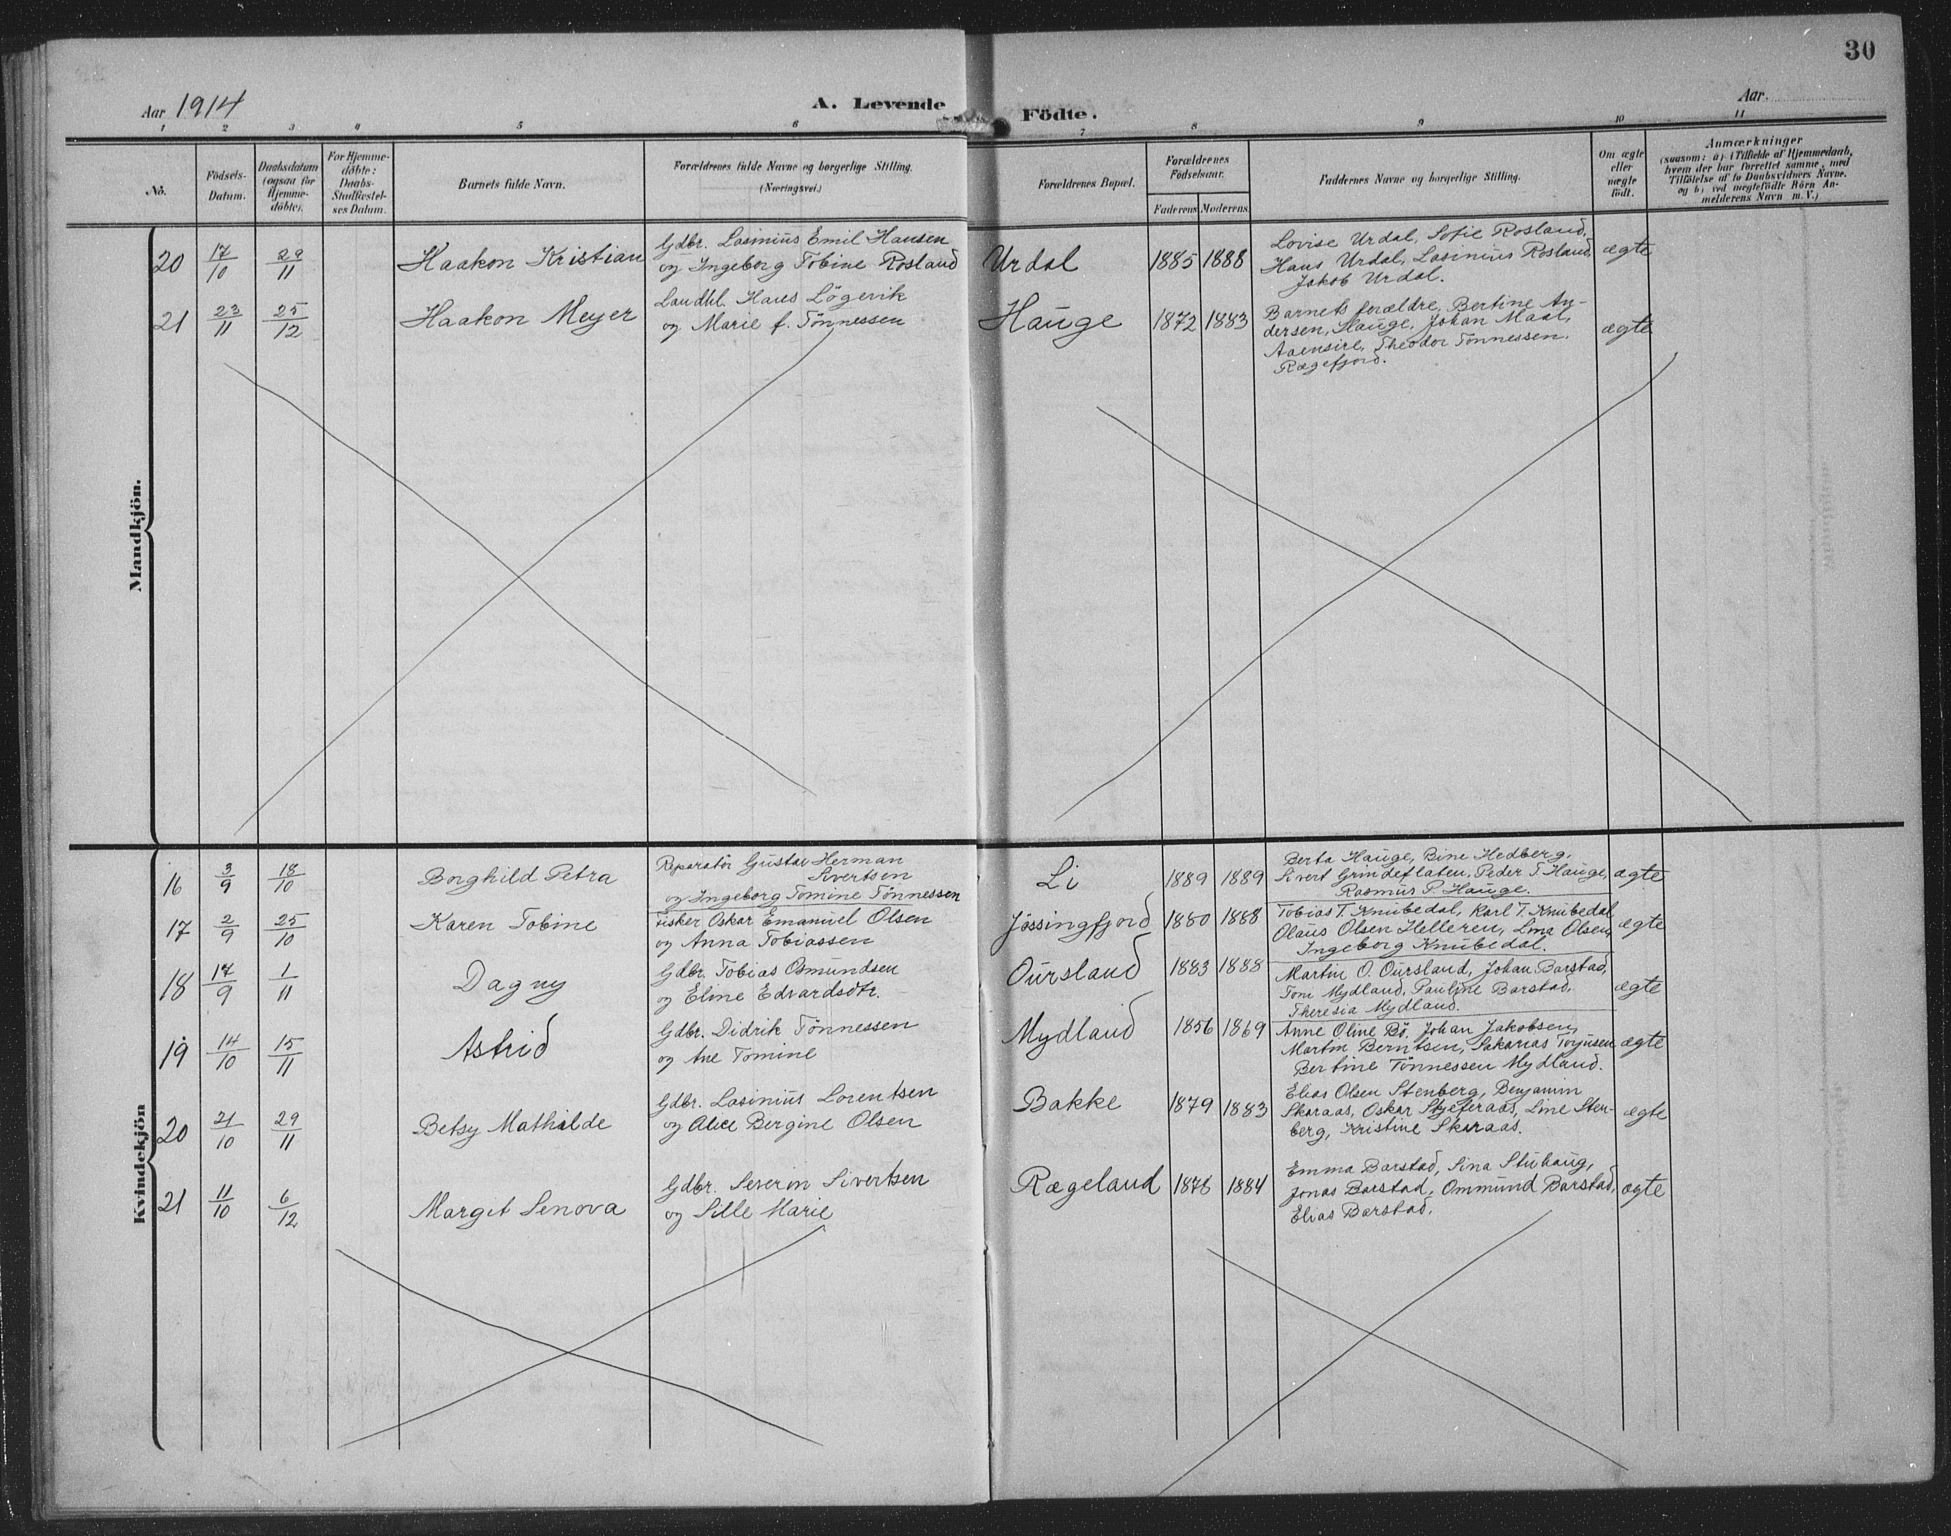 30
Aar 1914
A. Levende
Födte.
Aar
1 2 3 4 5 6 7 8 9 10 11
No.
Födsels-
Datum.
Daabsdatum
(ogsaa for
Hjemme-
döbte).
For Hjemme-
döbte:
Daabs-
Stadfæstel-
ses Datum.
Barnets fulde Navn.
Forældrenes fulde Navne og borgerlige Stilling.
(Næringsvei.)
Forældrenes Bopæl.
Forældrenes
Födselsaar.
Faderens Moderens
Faddernes Navne og borgerlige Stilling.
Om ægte
eller
uægte
födt.
Anmærkninger
(saasom: a) i Tilfælde af Hjemmedaab,
hvem der har forrettet samme, med
Tilföielse af to Daabsvidners Navne,
og b) ved uægtefödte Börn An-
melderens Navn m. V.)
Mandkjön.
20 17/10 29/11 Haakon Kristian
Gdbr. Lasinius Emil Hansen
og Ingeborg Tobine Rosland
Urdal 1885 1888
Lovise Urdal, Sofie Rosland,
Hans Urdal, Lasinius Rosland,
Jakob Urdal.
ægte
21 23/11 25/12 Haakon Meyer
Landhl. Hans Lögerik
og Marie f. Tönnessen
Hauge 1872 1883
Barnets forældre, Bertine An-
dersen, Hauge, Johan Maal,
Aaensire, Theodor Tönnessen,
Rægefjord.
ægte
Kvindekjön
16 3/9 18/10 Borghild Petra
Reparatör Gustav Herman
Sivertsen
og Ingeborg Tomine Tönnessen
Li 1889 1889
Berta Hauge, Bine Hedberg,
Sivert Grindeflaten, Peder T. Hauge,
Rasmus P. Hauge.
ægte
17 2/9 25/10 Karen Tobine
Fisker Oskar Emanuel Olsen
og Anna Tobiassen
Jössingfjord 1880 1888
Tobias T. Knubedal, Karl T. Knubedal
Olaus Olsen Helleren, Lina Olsen,
Ingeborg Knubedal.
ægte
18 17/9 1/11 Dagny
Gdbr. Tobias Osmundsen
og Eline Edvardsdtr.
Oursland 1883 1888
Martin O. Oursland, Johan Barstad,
Toni Mydland, Pauline Barstad,
Theresia Mydland.
ægte
19 14/10 15/11 Astrid
Gdbr. Didrik Tönnessen
og Ane Tomine
Mydland 1856 1869
Anne Oline Bö, Johan Jakobsen,
Martin Berntsen, Sakarias Torjusen,
Bertine Tönnessen Mydland.
ægte
20 21/10 29/11 Betsy Mathilde
Gdbr. Lasinius Lorentsen
og Alice Bergine Olsen
Bakke 1879 1883
Elias Olsen Stenberg, Benjamin
Skaraas, Oskar Stjeferaas, Line Sten-
berg, Kristine Skaraas.
ægte
21 11/10 6/12 Margit Senova
Gdbr. Severin Sivertsen
og Sille Marie
Rægeland 1876 1884
Emma Barstad, Sina Stuhaug,
Jonas Barstad, Ommund Barstad,
Elias Barstad.
ægte